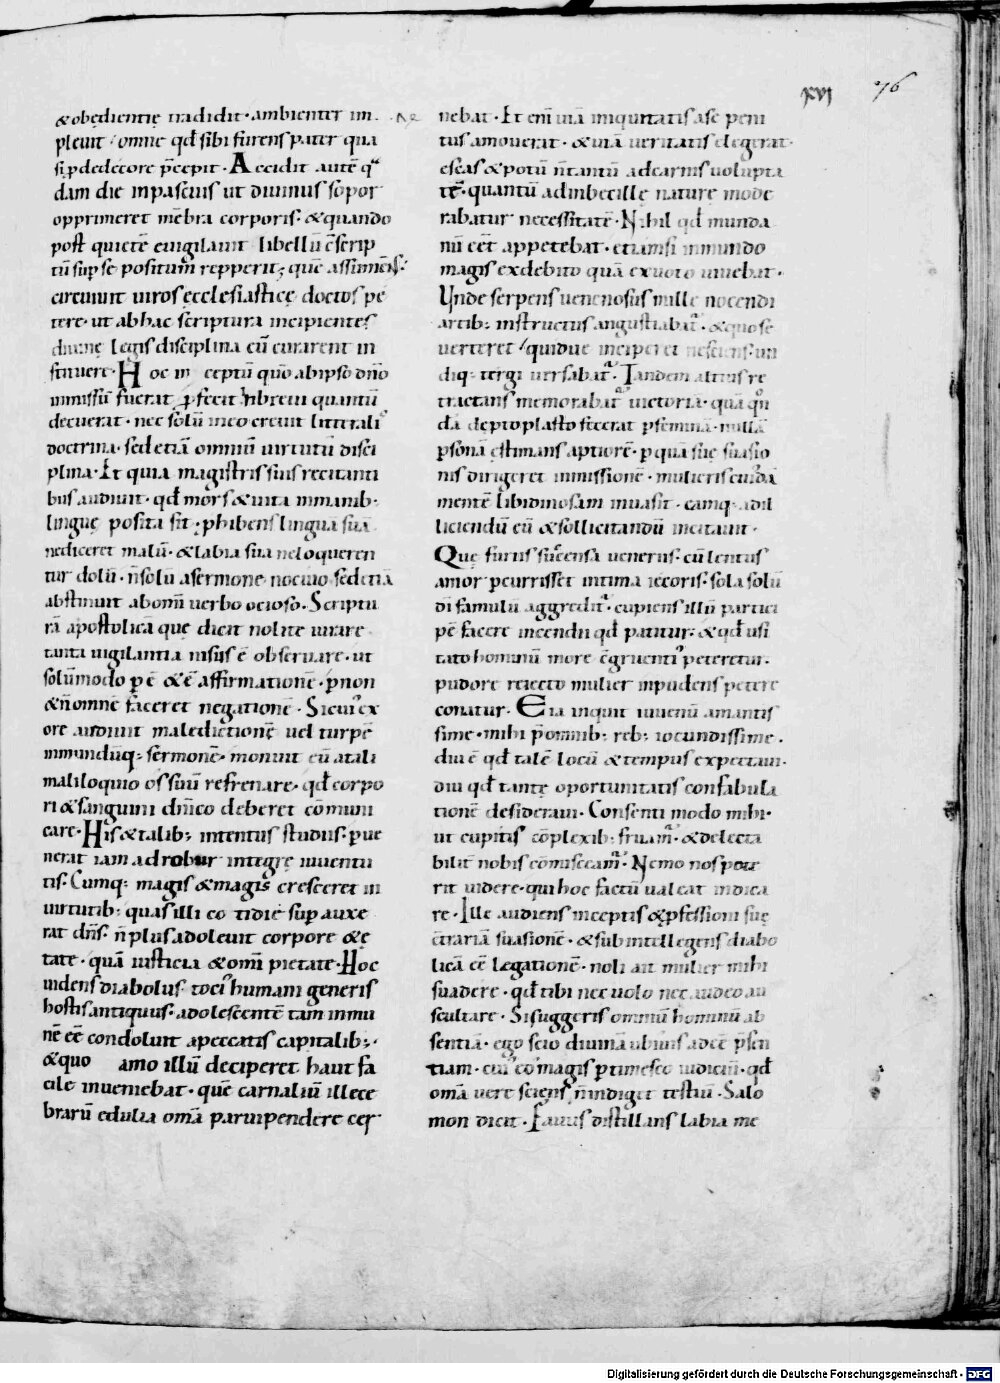 xvi 76
&obędientię tradidit · ambienter im
pleuit / omne qd̄ sibi furens pater qua
si p dedecore p̄cepit · Accidit autē q
dam die in pascuis ut diuinus sopor
opprimeret mēbra corporis · & quando
post quietē euigilauit libellū c̄scrip
tū sup se positum repperit; quē assumens ·
circuiuit uiros ęcclesiasticę doctos pe
tere · ut ab hac scriptura incipientes
diuinę legis disciplina eū curarent in
stituere · Hoc in ceptum quō ab ipso dn̄o
inmissū fuerat pfecit breui quantū
decuerat · nec solū in eo creuit litterali
doctrina · sed etiā omniū uirtutū disci
plina · Et quia magistris suis recitanti
bus audiuit · qd̄ mors & uita in manib;
linguę posita sit; phibens linguā suā
ne diceret malū · & labia sua ne loqueren
tur dolū · n̄ solū a sermone nociuo sed etiā
abstinuit ab om̄i uerbo ocioso · Scriptu
rā apostolicā quę dicit nolite iurare
tanta uigilantia nisus ē obseruare · ut
solūmodo p ē & ē affirmationē · p non
& n̄ omnē faceret negationē · Si cui ex
ore audiuit maledictionē uel turpē
inmundūq; sermonē · monuit eū a tali
maliloquio os suū refrenare · qd̄ corpo
ri & sanguini dn̄ico deberet cōmuni
care · His & talib; intentus studiis · pue
nerat iam ad robur integrę iuuentu
tis · Cumq; magis & magis cresceret in
uirtutib; quas illi cotidie sup auxe
rat dn̄s · n̄ plus adoleuit corpore & ę
tate · quā iusticia & om̄i pietate · Hoc
uidens diabolus toci humani generis
hostis antiquus · adolescentē tam inmu
nē ēē condoluit a peccatis capitalib; ·
& quo amo illū deciperet haut fa
cile inueniebat · quē carnaliū illece
brarū edulia om̄a paruipendere cer
nebat · Et eni uiā iniquitatis a se peni
tus amouerat · & uiā ueritatis elegerat ·
escas & potū n̄ tantū ad carnis uolupta
tē · quantū ad inbecillę naturę mode
rabatur necessitatē · Nihil qd̄ munda
nū eēt appetebat · etiamsi in mundo
magis ex debito quā ex uoto uiuebat ·
Unde serpens uenenosus mille nocendi
artib; instructus angustiabat · & quo se
uerteret / quidue inciperet nesciens · un
diq; tergiuersabat · Tandem altius re
tractans memorabat uictoriā · quā qn
dā de ptoplasto fecerat p feminā · nullā
psonā ęstimans aptiorē · p quā suę suasio
nis dirigeret inmissionē · mulieris cuidā
mentē libidinosam inuasit · eamq; ad il
liciendū eū & sollicitandū incitauit ·
Quę furiis succensa ueneriis · cū lentus
amor pcurrisset intima iecoris · sola solū
di famulū aggredit · cupiens illū partici
pē facere incendii qd̄ patitur · & qd̄ usi
tato hominū more c̄gruenti peteretur ·
pudore reiecto mulier inpudens petere
conatur · Eia inquit iuuenū amantis
sime · mihi p̄ omnib; reb; iocundissime ·
diu ē qd̄ talē locū & tempus expectaui ·
diu qd̄ tantę oportunitatis confabula
tionē desideraui · Consenti modo mihi ·
ut cupitis cōplexib; fruam · & delecta
bilit nobis cōmisceam · Nemo nos pote
rit uidere · qui hoc factū ualeat indica
re · Ille audiens inceptis & pfessioni suę
c̄trariā suasionē · & subintellegens diabo
licā ēē legationē · noli ait mulier mihi
suadere · qd̄ tibi nec uolo nec audeo au
scultare · Si suggeris omniū hominū ab
sentiā · ego scio diuinā ubiuis adēē p̄sen
tiam · cui eo magis ptimesco iudiciū · qd̄
om̄a uere sciens n̄ indiget testiū · Salo
mon dicit · Fauus distillans labia me
Digitalisierung gefördert durch die Deutsche Forschungsgemeinschaft - DFG